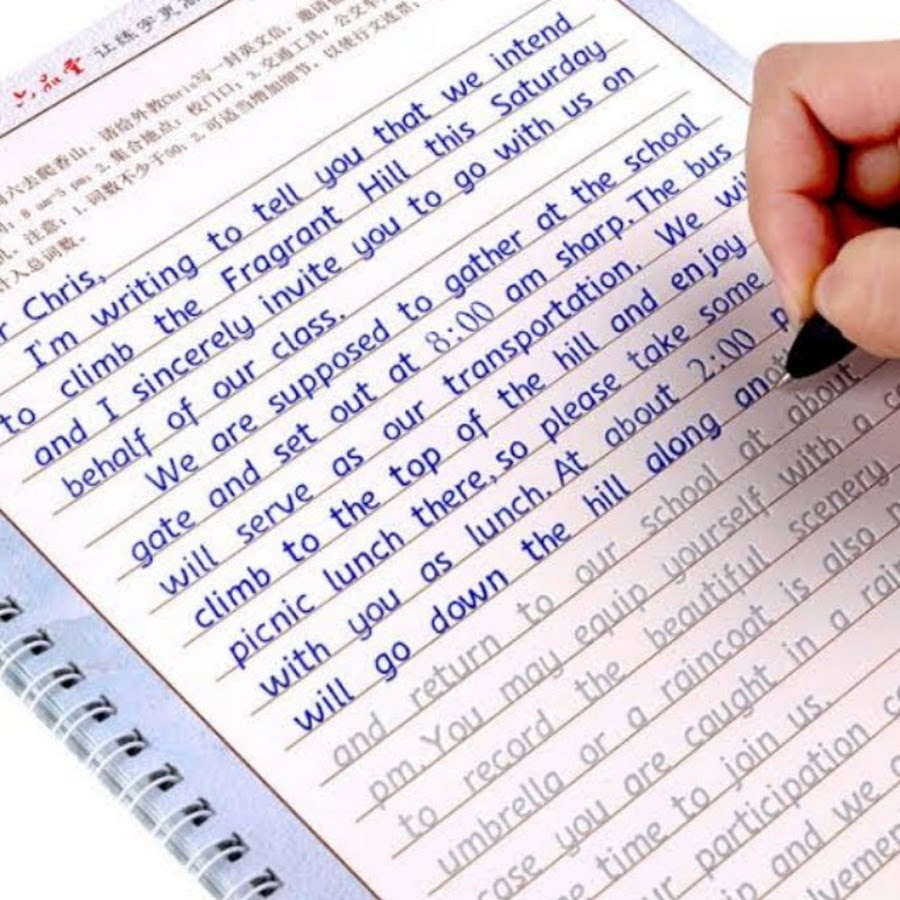 六品堂 让练字更
请给外教Chris写一封英文信，邀请
周六去爬香山。
9 am-5 pm; 2.集合地点：校门口；3.交通工具：公交车
注意：1.词数不少于50；2.可适当增加细节，以使行文连贯；
计入总词数。
Chris,
I'm writing to tell you that we intend
to climb the Fragrant Hill this Saturday
and I sincerely invite you to go with us on
behalf of our class.
We are supposed to gather at the school
gate and set out at 8:00 am sharp. The bus
will serve as our transportation. We
climb to the top of the hill and enjoy
picnic lunch there, so please take some
with you as lunch. At about 2:00 p
will go down the hill along
and return to our school at about
pm. You may equip yourself with a
to record the beautiful scenery
umbrella or a raincoat is also
case you are caught in a
time to join us.
participation
and we